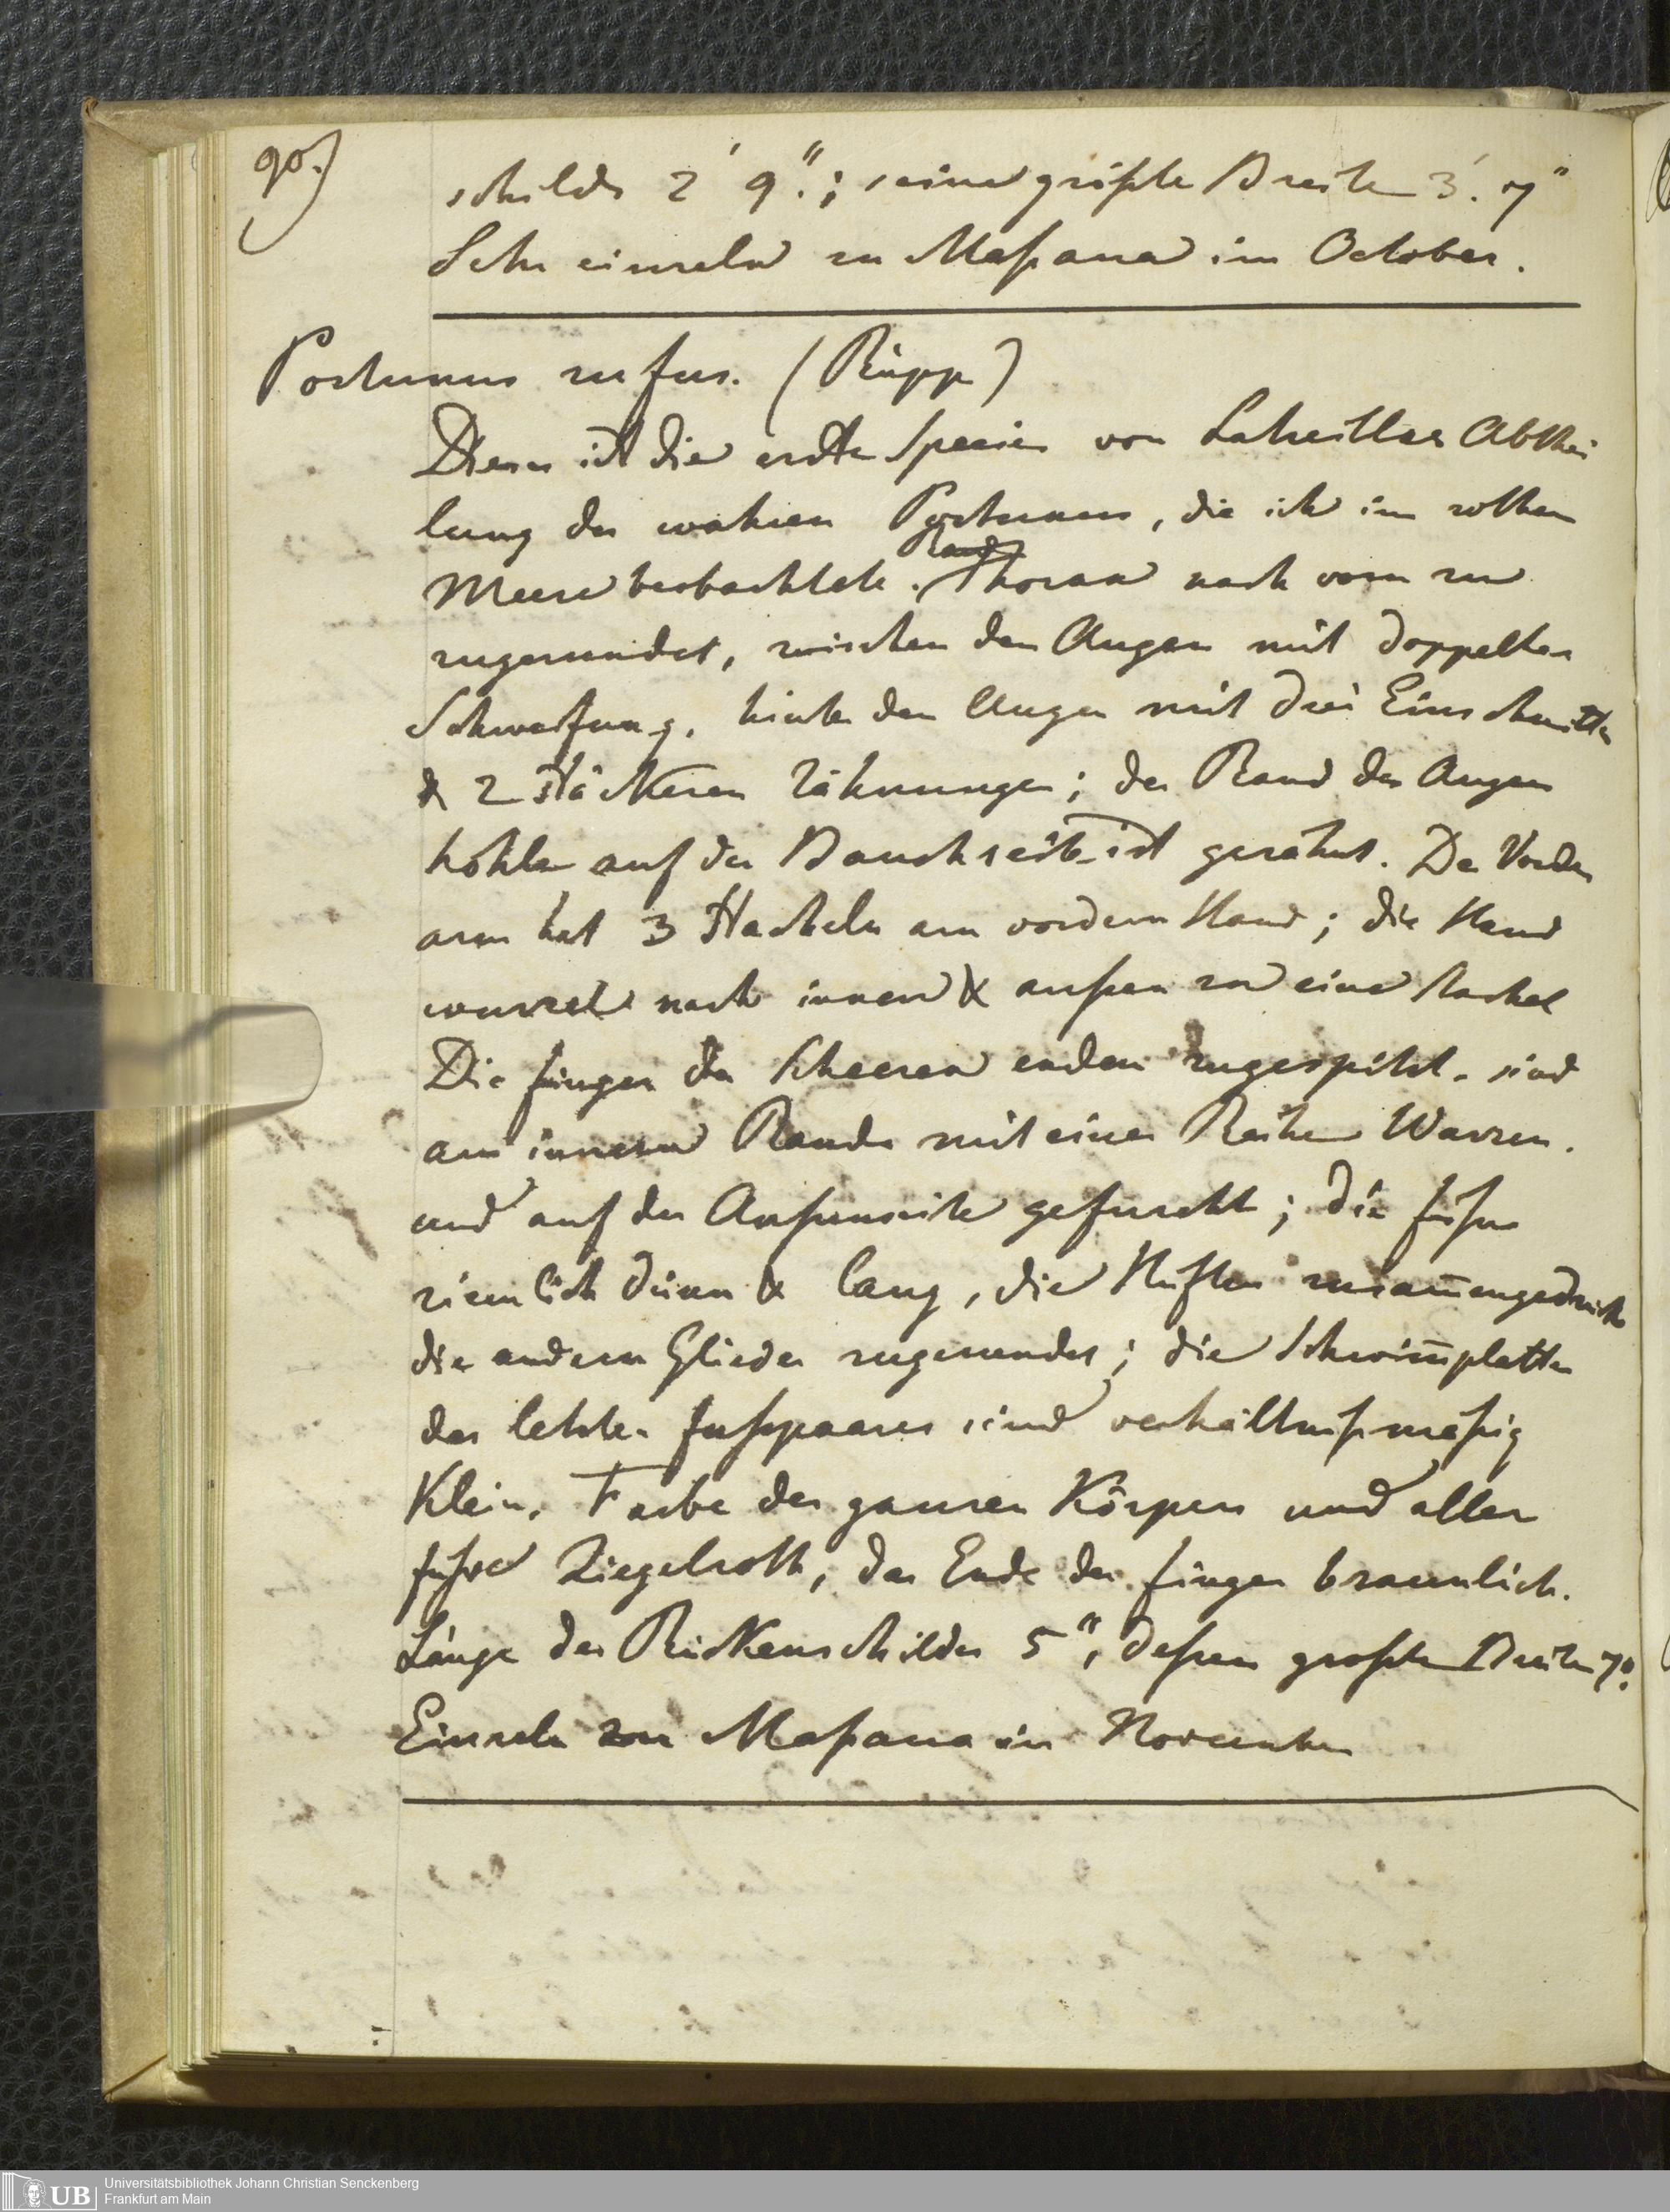 90.)
schildes 2' 9".; seine größte Breite 3'. 7"
Sehr einzeln zu Maßaua im October.
Portunus rufus. (Rüpp)
Dieses ist die erste Species von Latreilles Abthei
lung der wahren Portunus, die ich im rothen
Meere beobachtete. Thorax nach vorn zu
zugerundet, zwischen den Augen mit doppelter
Schweifung, hinter den Augen mit drei Einschnitten
& 2 stärkeren Zähnungen; der Rand der Augen
höhle auf der Bauchseite ist gezähnt. Der Vorder
arm hat 3 Stacheln am vordern Rand; die Hand
wurzel nach innen & außen zu eine Stachel
Die Finger der Scheeren enden zugespitzt, sind
am innern Rande mit einer Reihe Warzen.
und auf der Außenseite gefurcht; die Füße
ziemlich dünn & lang, die Hüften zusam̄engedrückt
die andern Glieder zugerundet; die Schwim̄platten
des letzten Fußpaares sind verhältnißmäßig
Klein. Farbe des ganzen Körpers und aller
Füße Ziegelroth, das Ende der Finger braunlich.
Länge des Rückenschildes 5", deßen großte Breite 7".
Einzeln zu Maßaua im November
UB
Universitätsbibliothek Johann Christian Senckenberg
Frankfurt am Main